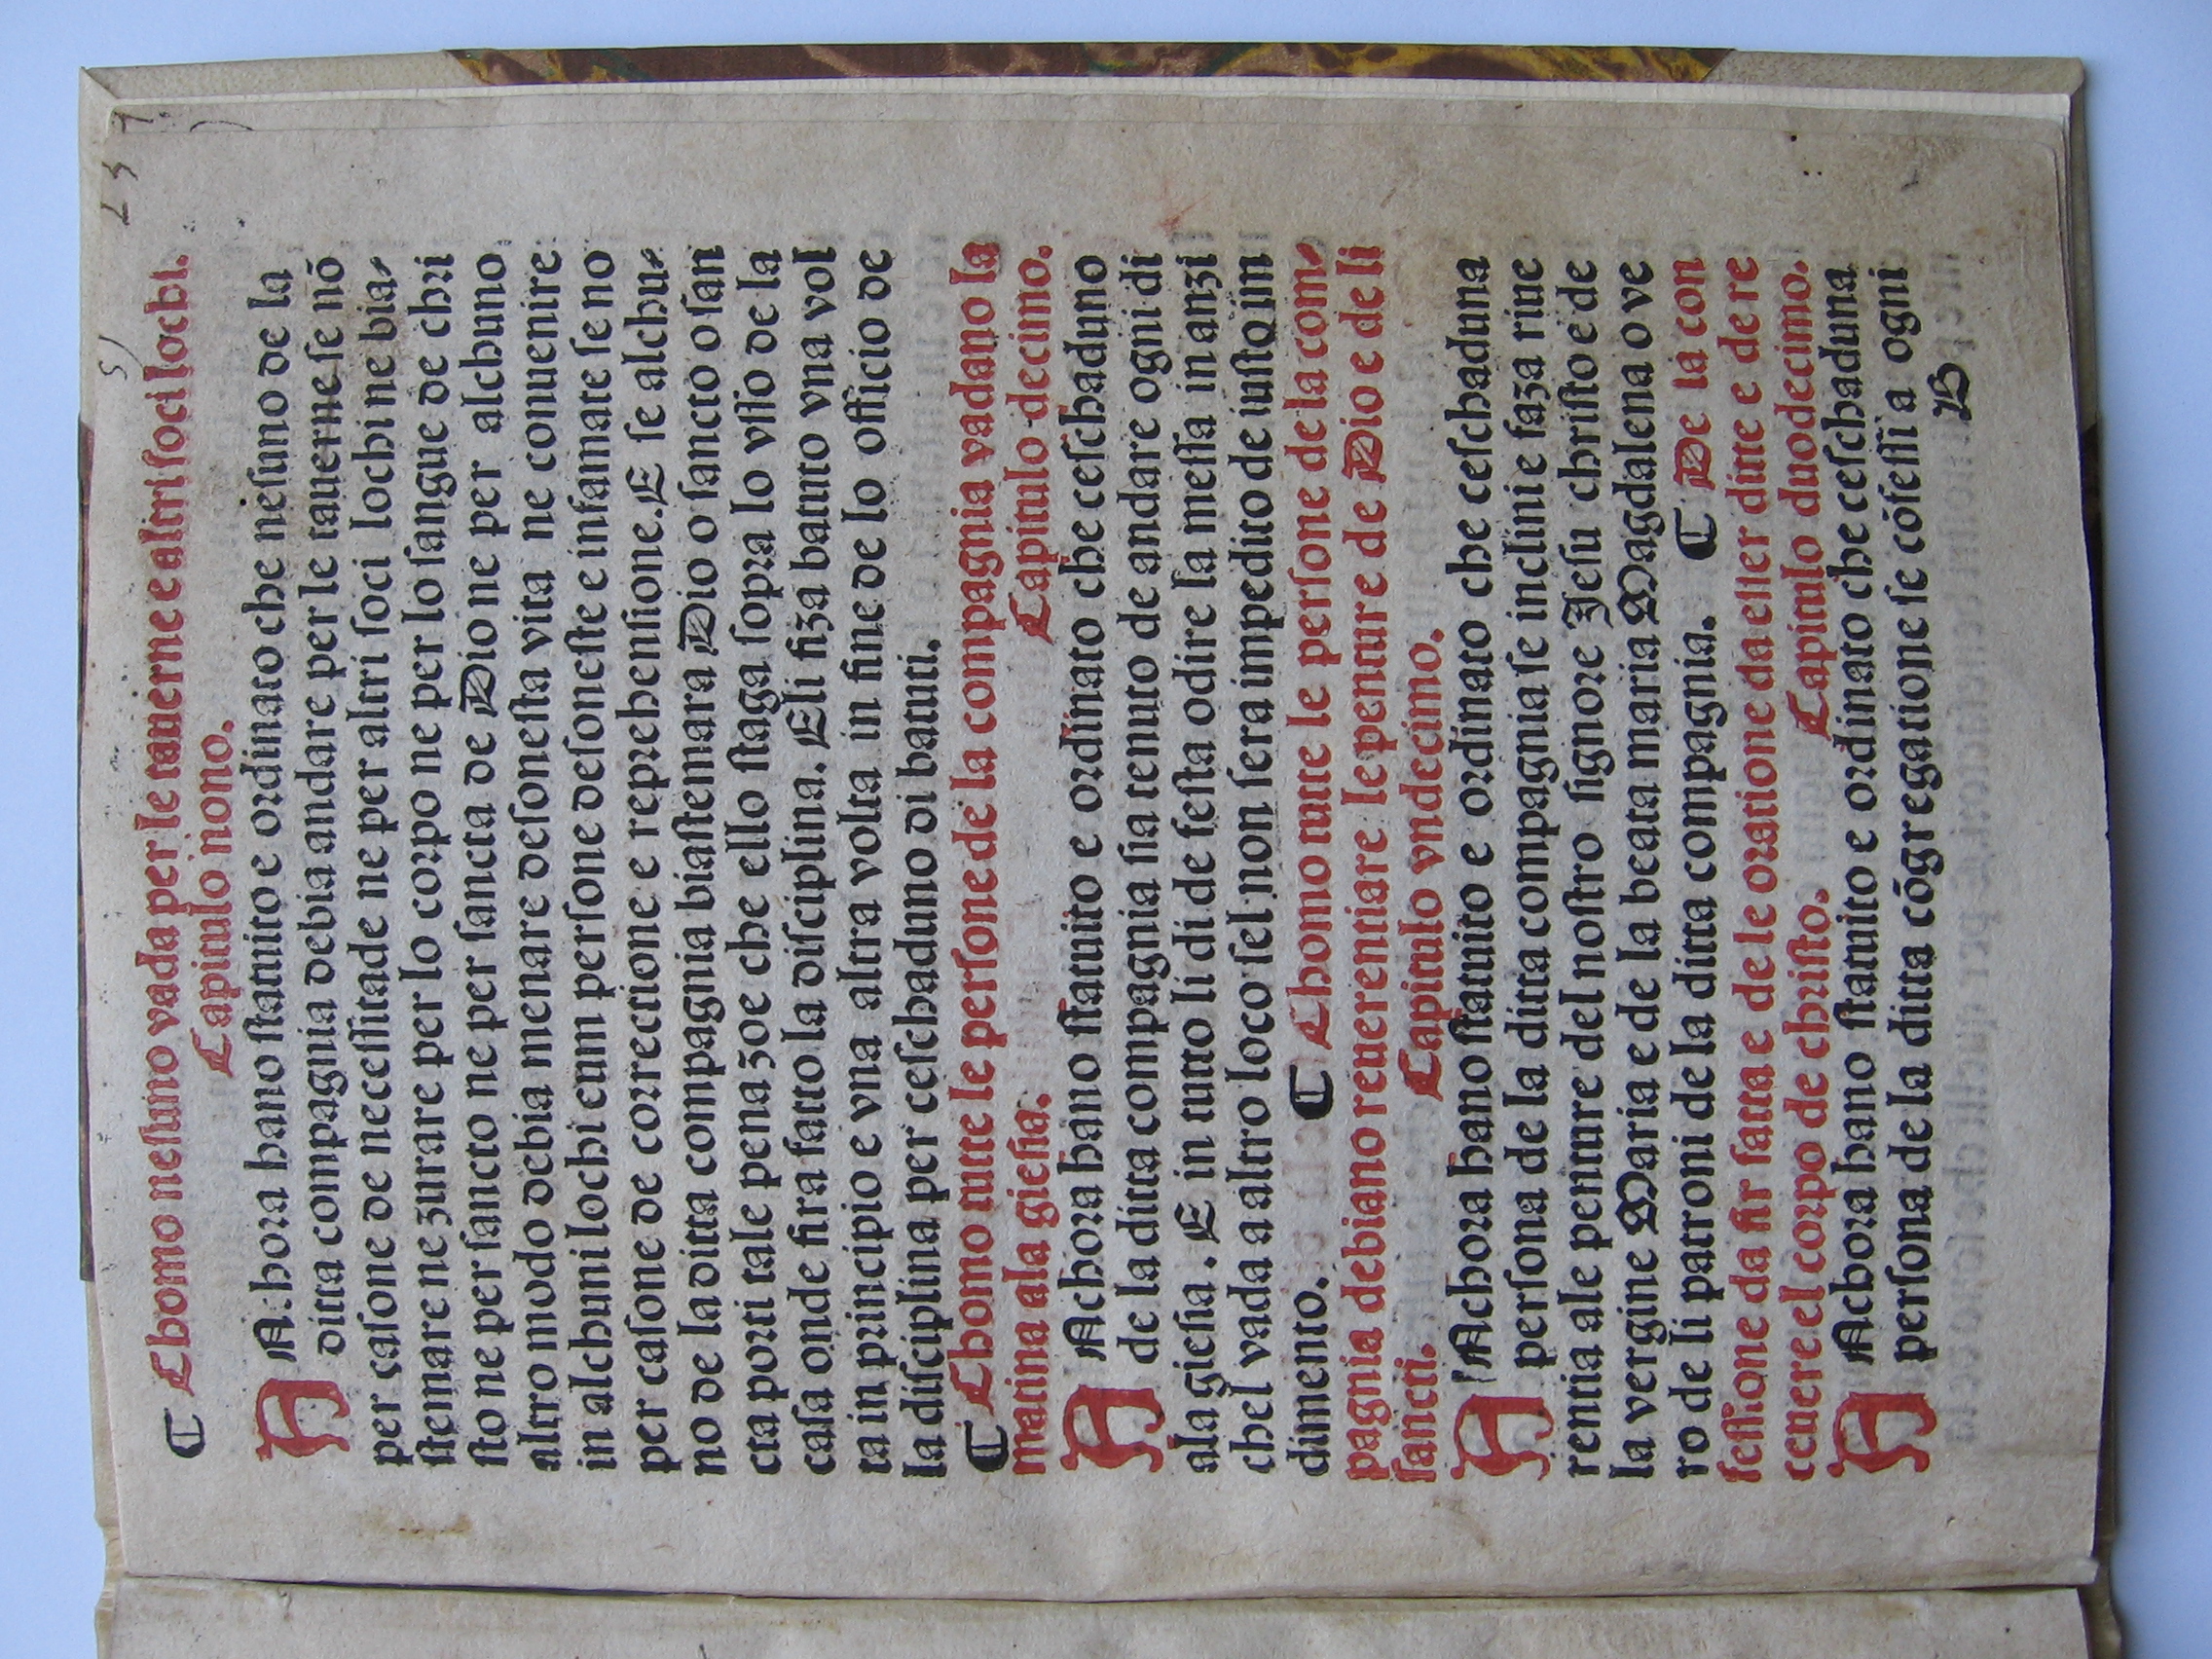 ¶ Chomo nesuno vada per le tauerne e altri soci lochi.
Capitulo nono.
AAchora hano statuito e ordinato che nesuno de la
ditta compagnia debia andare per le tauerne se nō
per casone de necessitade ne per altri soci lochi ne bia-
stemare ne zurare per lo corpo ne per lo sangue de chri
sto ne per sancto ne per sancta de Dio ne per alchuno
altro modo debia menare desonesta vita ne conuenire
in alchuni lochi cum persone desoneste e infamate se no
per casone de correctione e reprehensione. E se alchu-
no de la ditta compagnia biastemara Dio o sancto o san
cta porti tale pena zoe che ello staga sopra lo vsso de la
casa onde fira fatto la disciplina. E li fiza battuto vna vol
ta in principio e vna altra volta in fine de lo officio de
la disciplina per ceschaduno di batuti.
¶ Chomo tutte le persone de la compagnia vadano la
matina ala giesia. Capitulo decimo.
AAchora hano statuito e ordinato che ceschaduno
de la ditta compagnia sia tenuto de andare ogni di
ala giesia. E in tutto li di de festa odire la messa inanzi
chel vada a altro loco sel non sera impedito de iusto im
dimento. ¶ Chomo tutte le persone de la com-
pagnia debiano reuerentiare le penture de Dio e de li
sancti. Capitulo vndecimo.
AAchora hano statuito e ordinato che ceschaduna
persona de la ditta compagnia se inclini e faza riue
rentia ale penture del nostro signore Jesu christo e de
la vergine Maria e de la beata maria Magdalena o ve
ro de li patroni de la ditta compagnia. ¶ De la con
fessione da fir fatta e de le oratione da esser ditte e de re
ceuere el corpo de christo. Capitulo duodecimo.
AAchora hano statuito e ordinato che ceschaduna
persona de la ditta cōgregatione se cōfessi a ogni
B